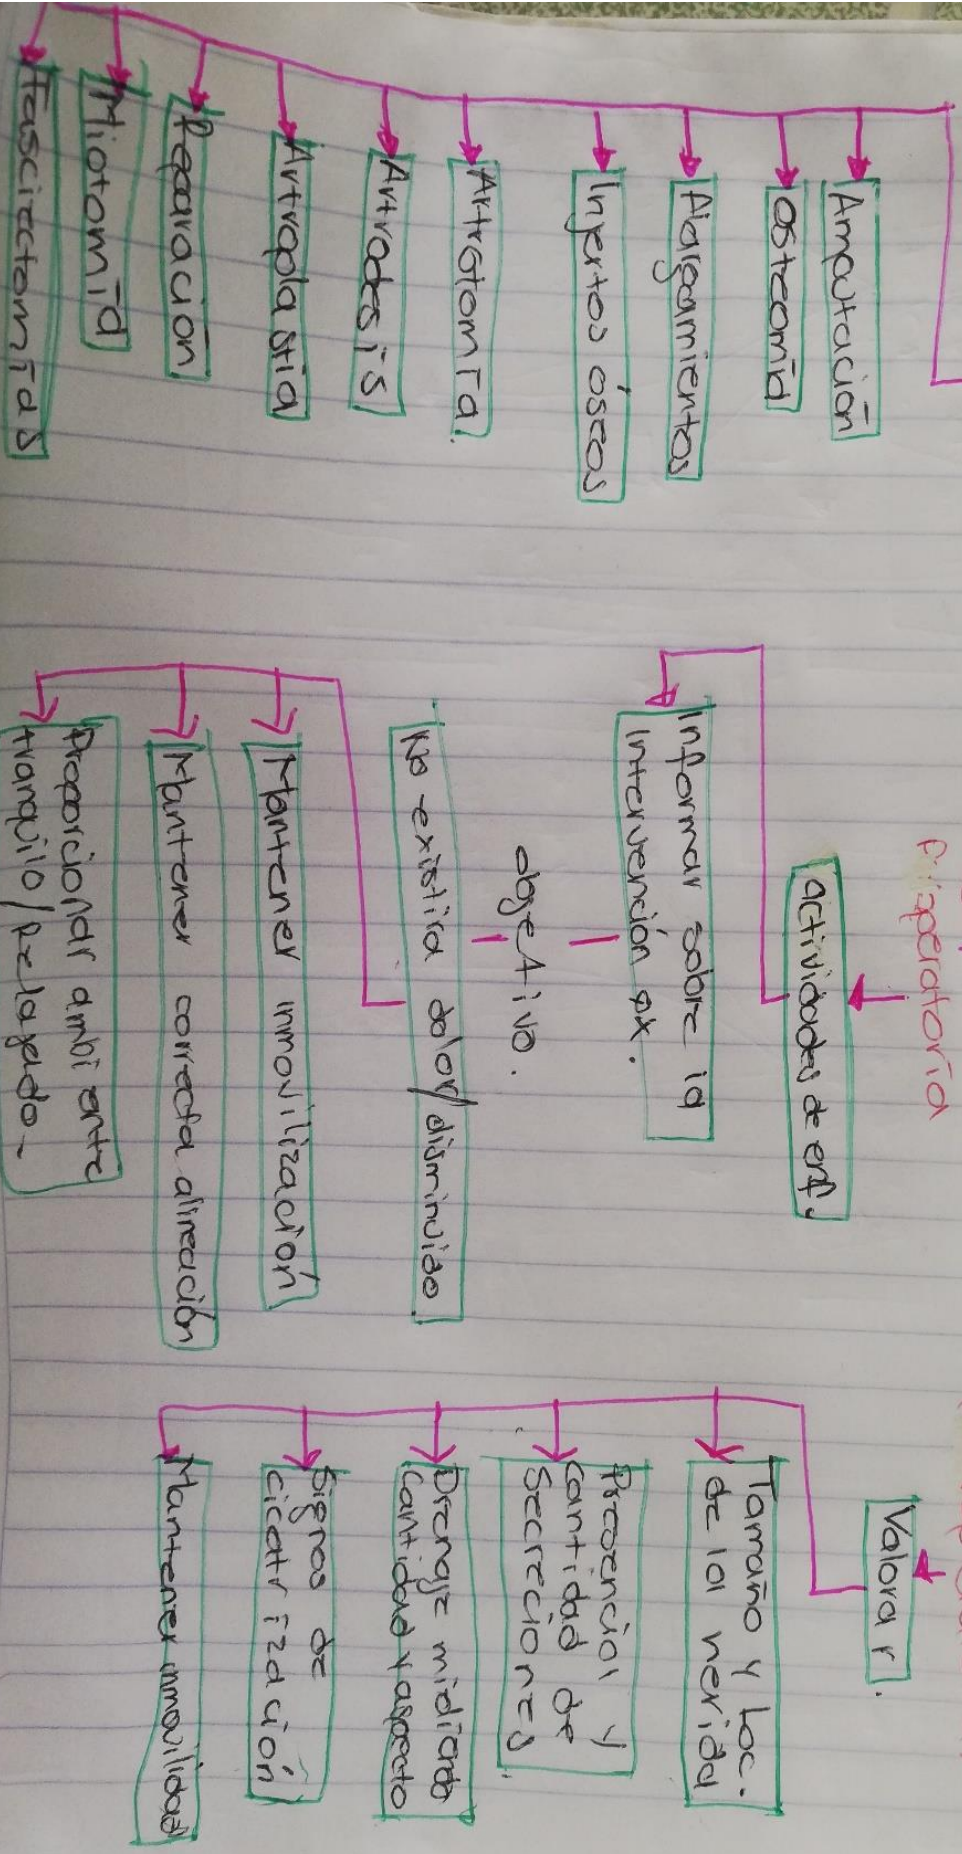 Amputación
osteomía
Alargamientos
Injertos óseos
Artrotomía.
Artrodesis
Artroplastia
Reparación
Miotomía
Fasciectomías
actividades de enf.
Informar sobre la
intervención qx.
objetivo.
No existira dolor/disminuido
Mantener inmovilización
Mantener correcta alineación
Proporcionar ambiente
tranquilo/Relajado-
Valorar.
Tamaño y Loc.
de la herida
Presencia y
cantidad de
Secreciones.
Drenaje midiendo
cantidad y aspecto
Signos de
cicatrización
Mantener inmovilidad